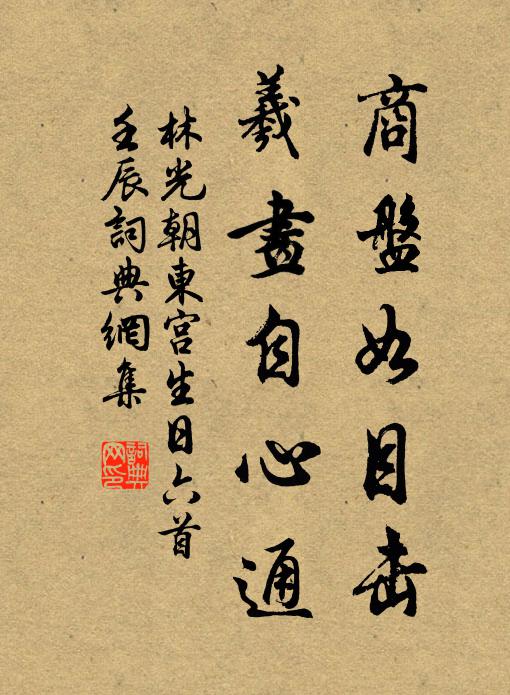 商盤如目击
羲畫自心通
林光朝東宮生日六首
壬辰詞典網集
詞典网印